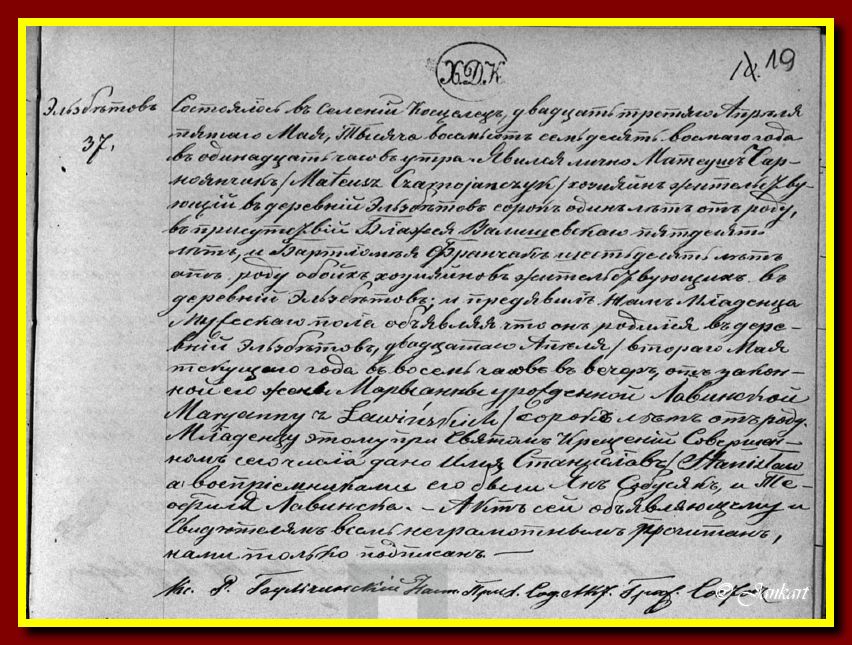 Х.Д.К
19
Эльзбѣтовъ
37.
Состоялось въ селеніи Косцелецъ, двадцать третяго Апрѣля
пятаго Мая, тысяча восемьсотъ семьдесятъ восмаго года
въ одинадцать часовъ утра. Явился лично Матеушъ Чар-
ноянчикъ /Mateusz Czarnojańczyk/ хозяинъ жительству-
ющій въ деревнѣ Эльзбѣтовъ сорокъ одинъ лѣтъ отъ роду,
въ присутствіи Блажея Валишевскаго пятдесятъ
лѣтъ, и Бартломея Францакъ шестьдесятъ лѣтъ
отъ роду обоихъ хозяиновъ жительствующихъ въ
деревнѣ Эльзбѣтовъ; и предявилъ намъ Младенца
Мужескаго пола объявляя что онъ родился въ дере-
внѣ Эльзбѣтовъ, двадцатаго Апреля / втораго Мая
текущаго года въ восемь часовъ въ вечеръ, отъ закон-
ной его жены Марыанны урожденной Лавинской
Maryanny z Lawińskich / сорокъ лѣтъ отъ роду.
Младенцу этому при Святомъ Крещеніи Совершен-
номъ сего числа дано имя Станиславъ / Stanisław
а воспріемниками его были Янъ и Те-
офиля Лавинска. - Актъ сей объявляющему и
Свидѣтелямъ всемъ неграмотнымъ Прочитанъ,
нами только подписанъ. —
Кс. Р. Наст. Прих. Сод. Акт. Граж. Сост.
© Jankart